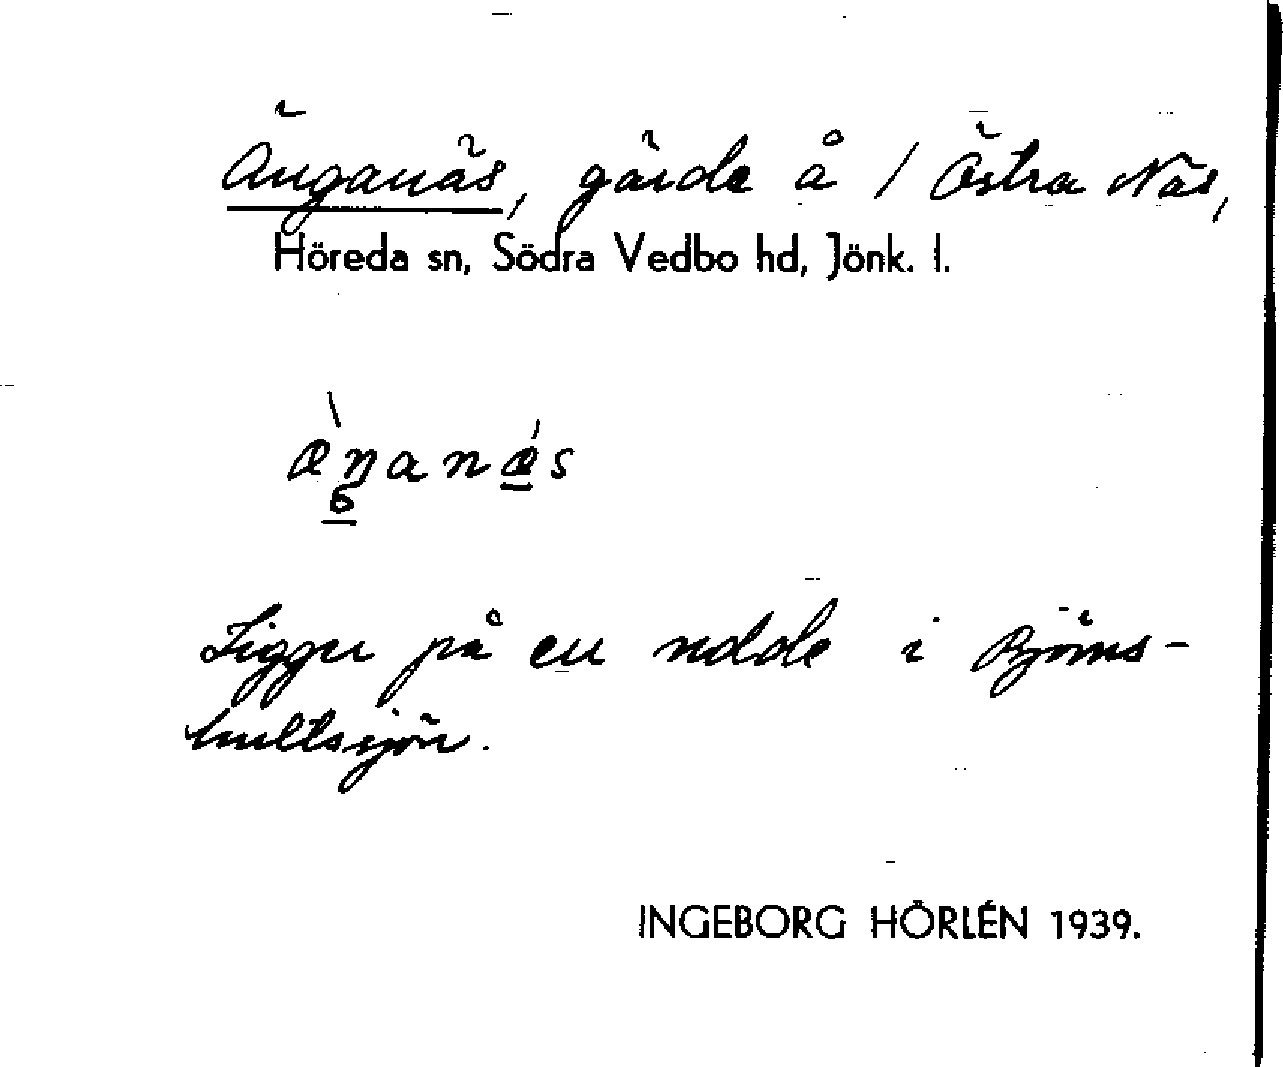 Änganäs, gärde å / Östra Näs,
Höreda sn, Södra Vedbo hd, Jönk. l.
æ̀ŋanǽs
Ligger på en udde i Björns-
hultsjön.
INGEBORG HÖRLÉN 1939.